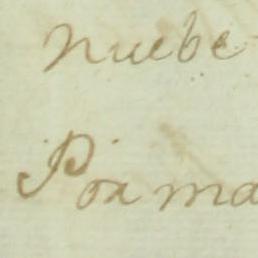 nuebe
Por ma